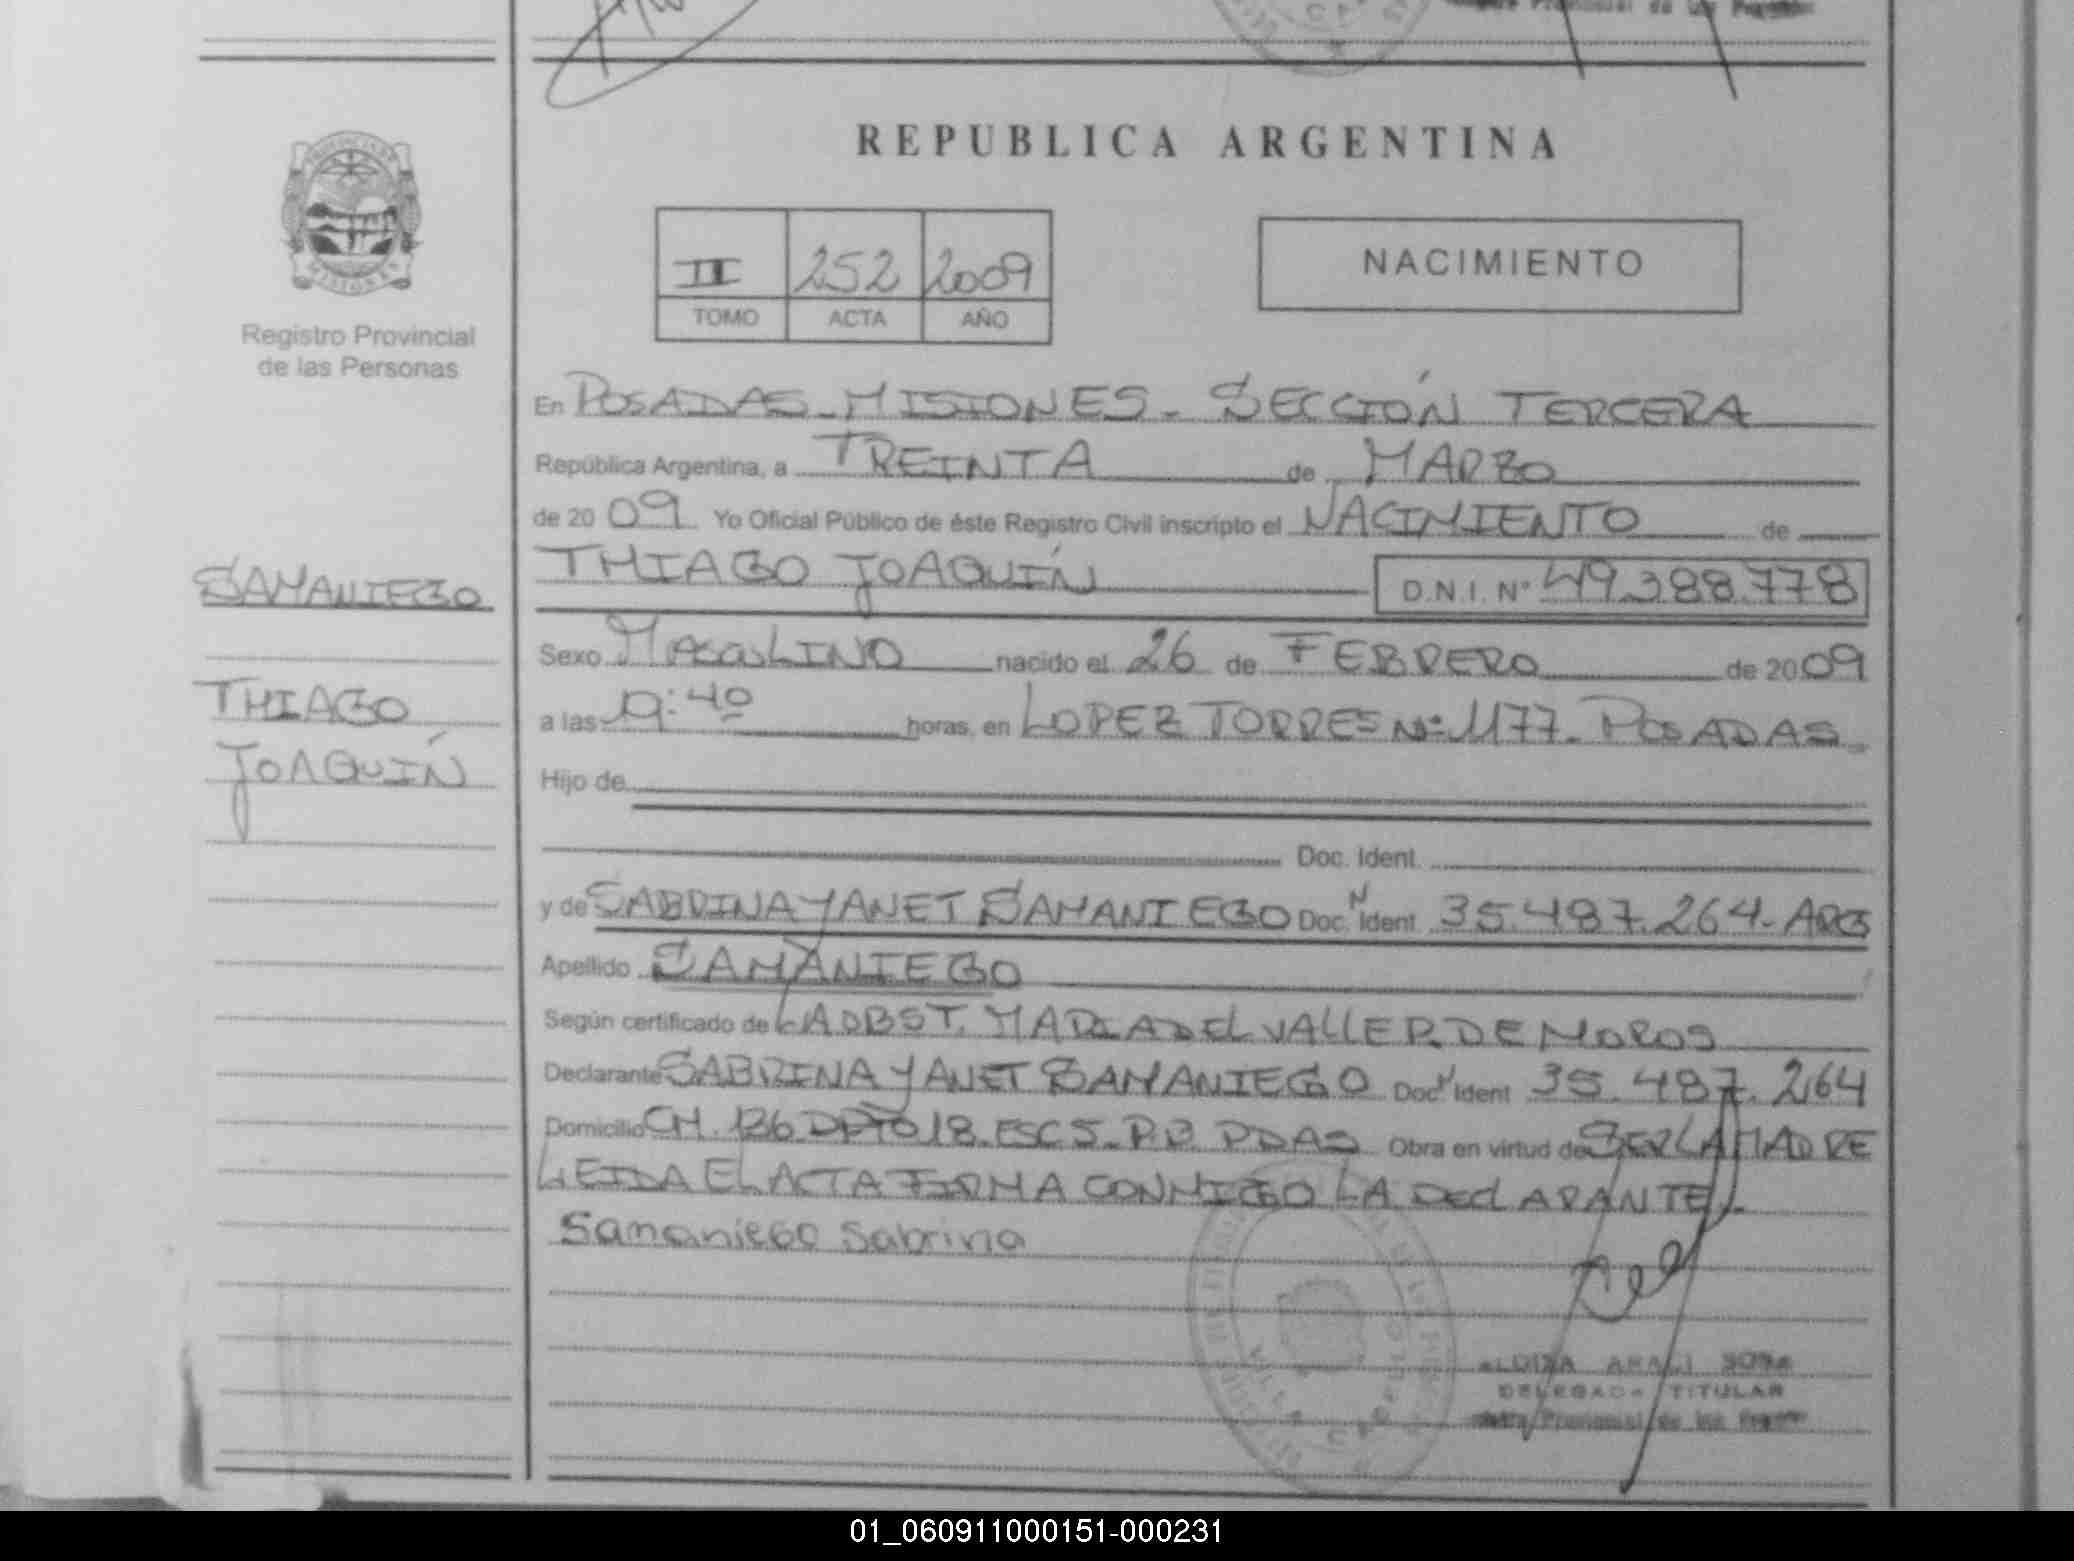 REPUBLICA ARGENTINA
II 252 2009
TOMO ACTA AÑO
NACIMIENTO
Registro Provincial
de las Personas
SAMANIEGO
THIAGO
JOAQUÍN
En POSADAS-MISIONES-SECCIÓN TERCERA
República Argentina, a TREINTA de MARZO
de 2009 Yo Oficial Público de éste Registro Civil inscripto el NACIMIENTO de
THIAGO JOAQUÍN D.N.I. Nº 49.388.778
Sexo MASCULINO nacido el 26 de FEBRERO de 2009
a las 9:40 horas, en LOPEZ TORRES Nº 1177-POSADAS-
Hijo de
Doc. Ident.
y de SABRINA YANET SAMANIEGO Doc. N Ident. 35.487.264-ARG
Apellido SAMANIEGO
Según certificado de LA OBST. MARIA DEL VALLE R. DE MOROS
Declarante SABRINA YANET SAMANIEGO Doc. N Ident 35.487.264
Domicilio CH. 136 DPTO 18-ESC 5-P.B. PDAS Obra en virtud de SER LA MADRE
LEIDA EL ACTA FIRMA CONMIGO LA DECLARANTE-
Samaniego Sabrina
ARACI SOSA
DELEGADA TITULAR
Provincial de las
01_060911000151-000231